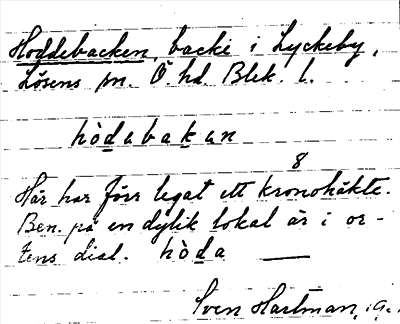 Hoddebacken, backe i Lyckeby,
Lösens sn. Ö hd. Blek. l.
hòdabakan
8
Här har förr legat ett kronohäkte.
Ben. på en dylik lokal är i or-
tens dial. hòda —
Sven Hartman,